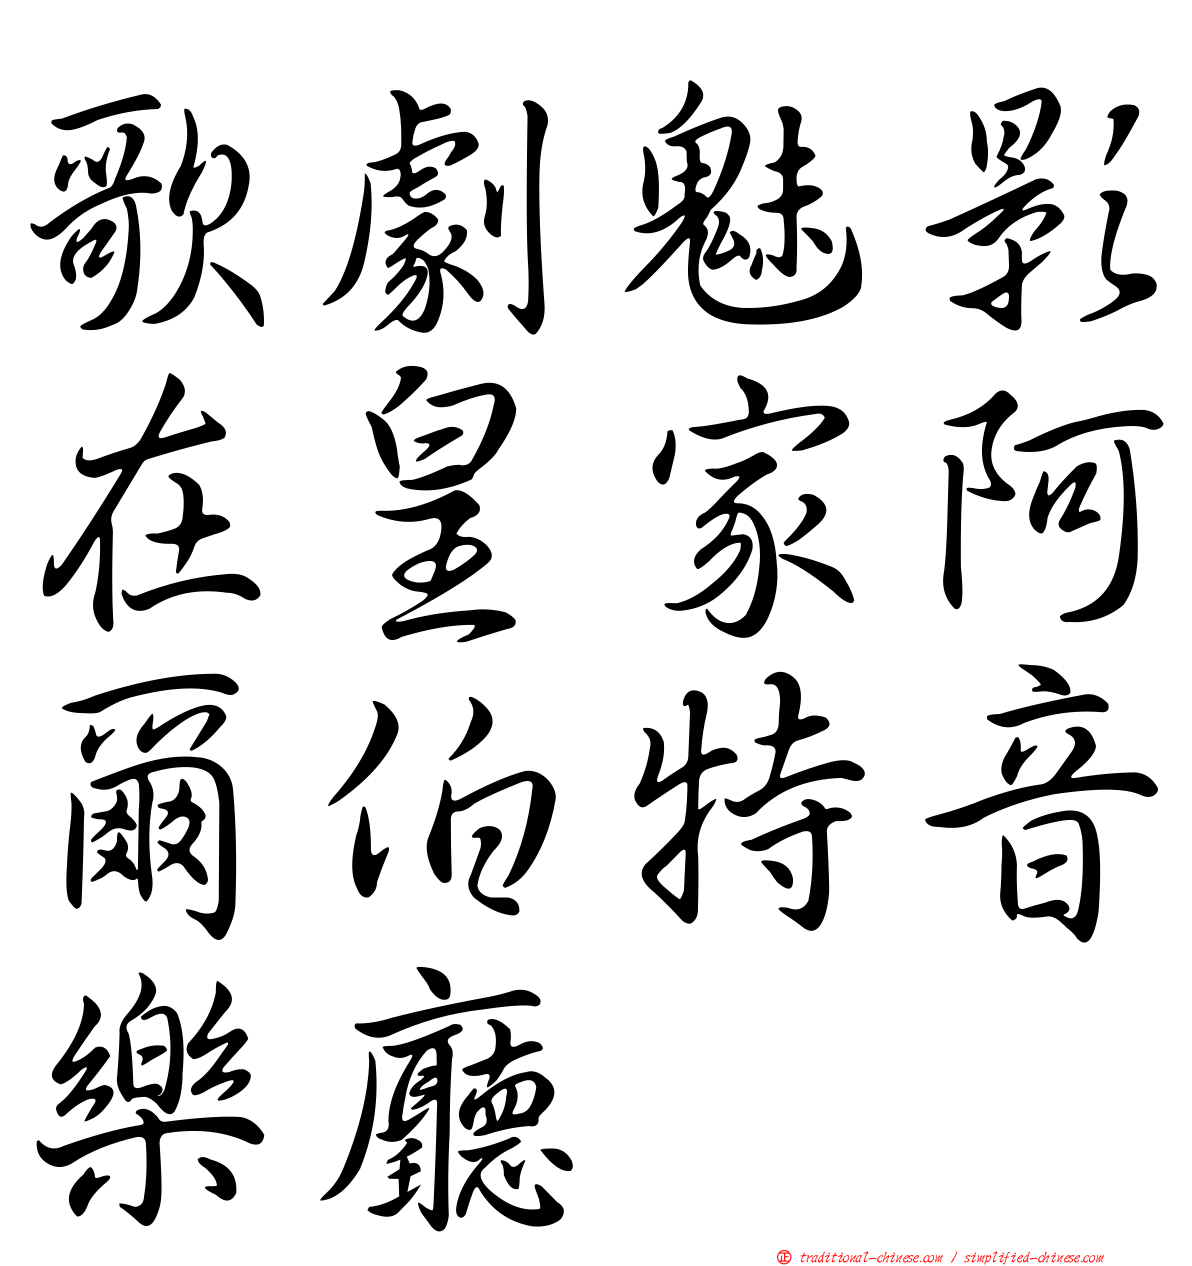 歌劇魅影
在皇家阿
爾伯特音
樂廳
正 traditional-chinese.com / simplified-chinese.com